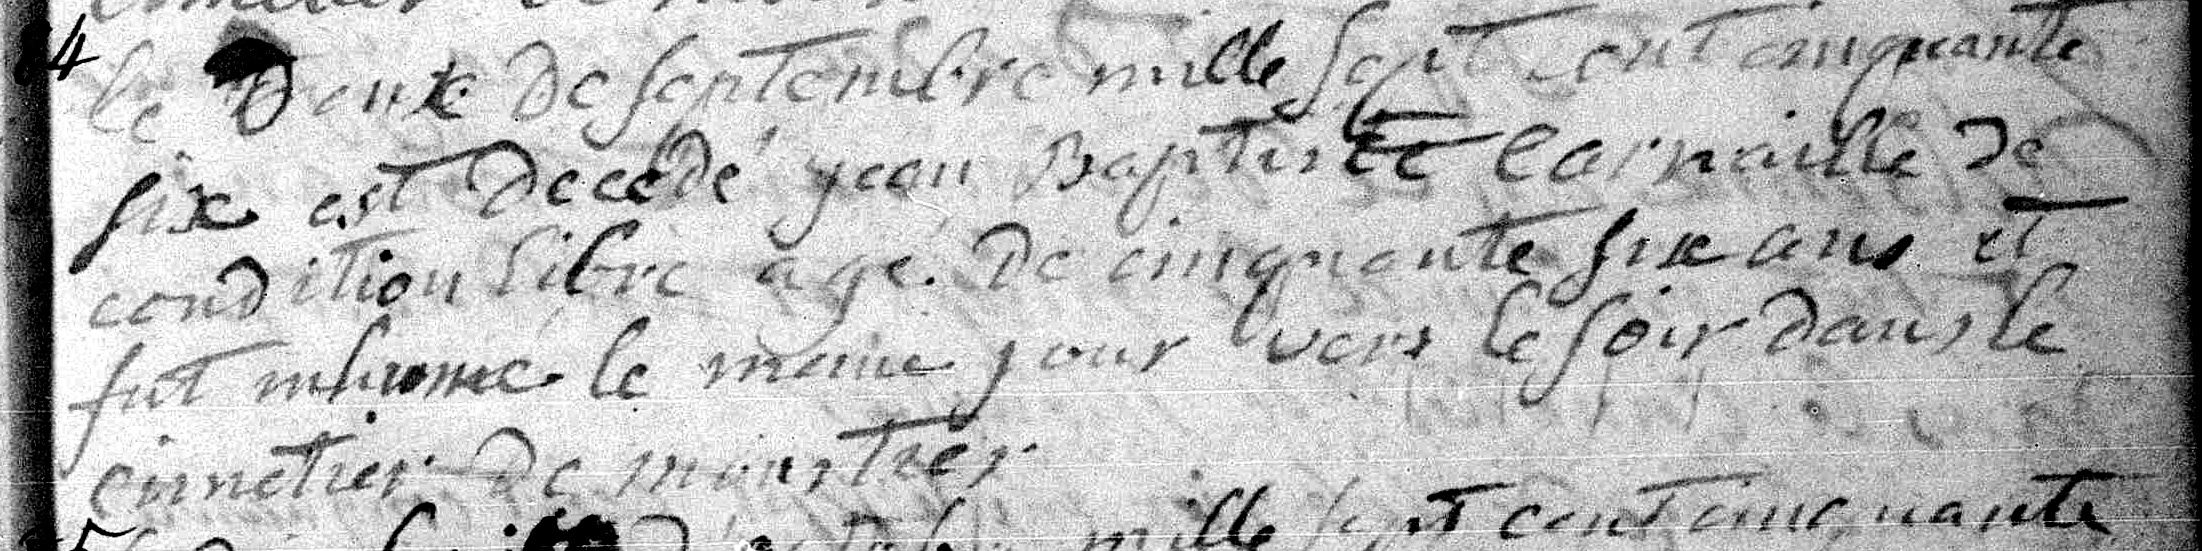 14
le trente de septembre mille sept cent cinquante
six est decedé jean Baptiste Cornaille de
condition libre agé de cinquante six ans et
fut inhumé le meme jour vers le soir dans le
cimetier de mourtier
mille sept cent cinquante